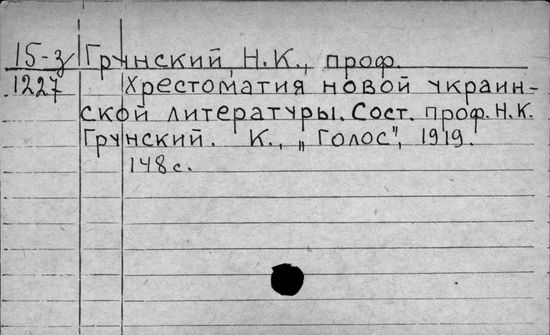 15-з Грунский, Н.К., проф.
1227 Хрестоматия новой украин-
ской литературы. Сост. проф. Н.К.
Грунский. К., „Голос", 1919.
148 с.